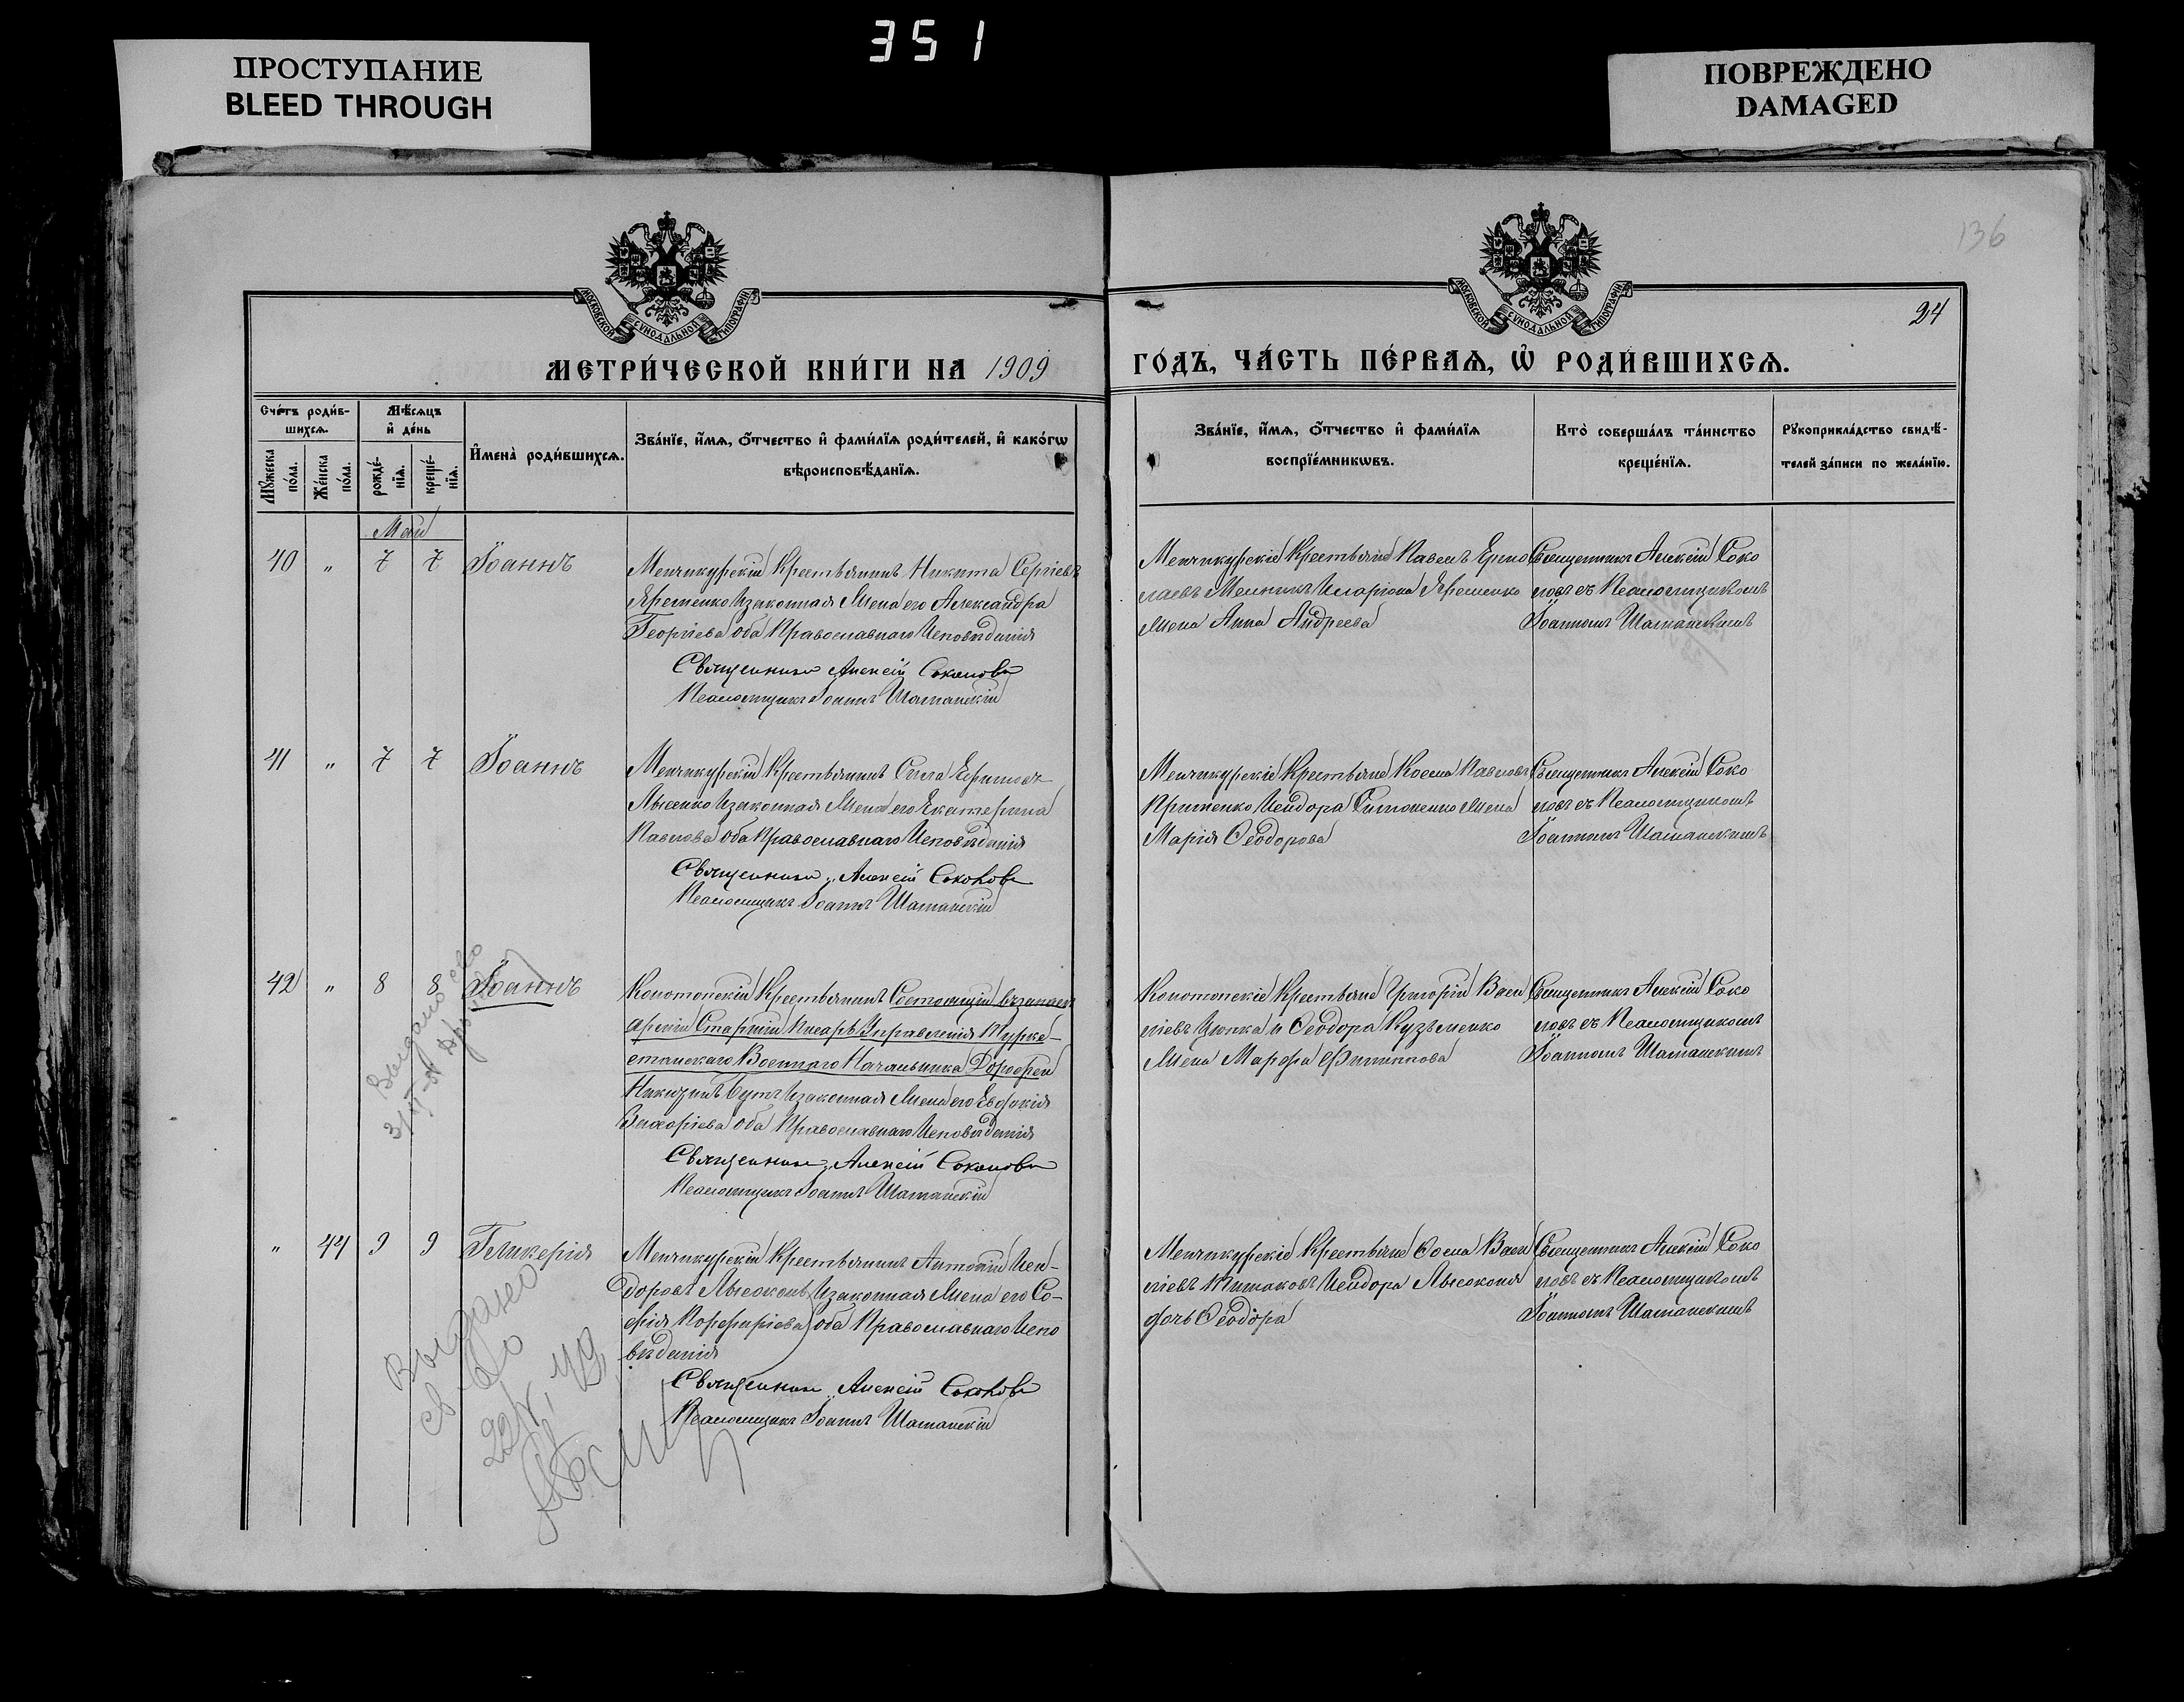 351
ПРОСТУПАНИЕ
BLEED THROUGH
ПОВРЕЖДЕНО
DAMAGED
136
24
МОСКОВСКОЙ СѴНОДАЛЬНОЙ ТИПОГРАФІИ
МОСКОВСКОЙ СѴНОДАЛЬНОЙ ТИПОГРАФІИ
МЕТРИ́ЧЕСКОЙ КНИ́ГИ НА 1909
ГО́ДЪ, ЧА́СТЬ ПЕ́РВАѦ, Ѽ РОДИ́ВШИХСѦ.
Сче́тъ роди́в-
шихсѧ.
Мꙋжеска по́ла.
Же́нска по́ла.
Мѣ́сѧцъ
и҆ де́нь
рожде́-нїѧ.
креще́-нїѧ.
И҆мена̀ роди́вшихсѧ.
Зва́нїе, и҆́мѧ, ѻ҆́тчество и҆ фами́лїѧ роди́телей, и҆ како́гѡ
вѣроисповѣ́данїѧ.
Зва́нїе, и҆́мѧ, ѻ҆́тчество и҆ фами́лїѧ
воспрїе́мникѡвъ.
Кто̀ соверша́лъ та́инство
креще́нїѧ.
Рꙋкоприкла́дство свидѣ́-
телей за́писи по жела́нїю.
Май
40 " 7 7 Іоаннъ
Менчикурскій Крестьянинъ Никита Сергіевъ
Яременко Изаконная Жена его Александра
Георгіева оба Православнаго Исповѣданія
Священникъ Алексій Соколовъ
Псаломщикъ Іоаннъ Шаманскій
Менчикурскіе Крестьяне Павелъ Ермо
лаевъ Мелникъ Иларіона Яременко
Жена Анна Андреева
Священникъ Алексій Соко
ловъ съ Псаломщикомъ
Іоанномъ Шаманскимъ
41 " 7 7 Іоаннъ
Менчикурскій Крестьянинъ Сила Ефимовъ
Лысенко Изаконная Жена его Екатерина
Павлова оба Православнаго Исповѣданія
Священникъ Алексій Соколовъ
Псаломщикъ Іоаннъ Шаманскій
Менчикурскіе Крестьяне Косма Павловъ
Притенко Исидора Симоненко Жена
Марія Ѳеодорова
Священникъ Алексій Соко
ловъ съ Псаломщикомъ
Іоанномъ Шаманскимъ
42 " 8 8 Іоаннъ
Выдано св-во
Конотопскій Крестьянинъ Состоящій въ запасѣ
Арміи Старшій Писарь Управленія Турке-
станскаго Военнаго Начальника Дорофей
Изаконная Жена его Евдокія
Захоріева оба Православнаго Исповѣданія
Священникъ Алексій Соколовъ
Псаломщикъ Іоаннъ Шаманскій
Конотопскіе Крестьяне Григорій Васи
ліевъ Цюпка и Ѳеодора Кузьменко
Жена Марѳа Филиппова
Священникъ Алексій Соко
ловъ съ Псаломщикомъ
Іоанномъ Шаманскимъ
" 44 9 9 Гликерія
Выдано
св-во
Менчикурскій Крестьянинъ Антоній Иси-
доровъ Лысоконь Изаконная Жена его Со-
фія Порфиріева оба Православнаго Испо
вѣданія
Священникъ Алексій Соколовъ
Псаломщикъ Іоаннъ Шаманскій
Менчикурскіе Крестьяне Ѳома Васи
ліевъ Исидора Лысоконя
дочь Ѳеодора
Священникъ Алексій Соко
ловъ съ Псаломщикомъ
Іоанномъ Шаманскимъ